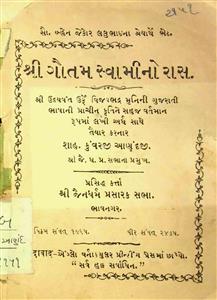 સૌ. બ્હેન જેકોર લલુભાઇના શ્રેયાર્થે ભેટ.
શ્રી ગૌતમ સ્વામીનો રાસ.
શ્રી ઉદયવંત ઉર્ફે વિજયભદ્ર મુનિની ગુજરાતી
ભાષાની પ્રાચીન કૃતિને સહજ વર્તમાન
રૂપમાં લખી અર્થ સાથે
તૈયાર કરનાર
શાહ. કુંવરજી આણંદજી.
શ્રી જૈ. ધ. પ્ર. સભાના પ્રમુખ.
પ્રસિદ્ધ કર્તા
શ્રી જૈનધર્મ પ્રસારક સભા.
ભાવનગર.
વિક્રમ સંવત ૧૯૬૫. વીર સંવત ૨૪૩૫.
પ્રીન્ટીંગ પ્રેસમાં છાપ્યો.
"સર્વ હક્ક સ્વાધિન."